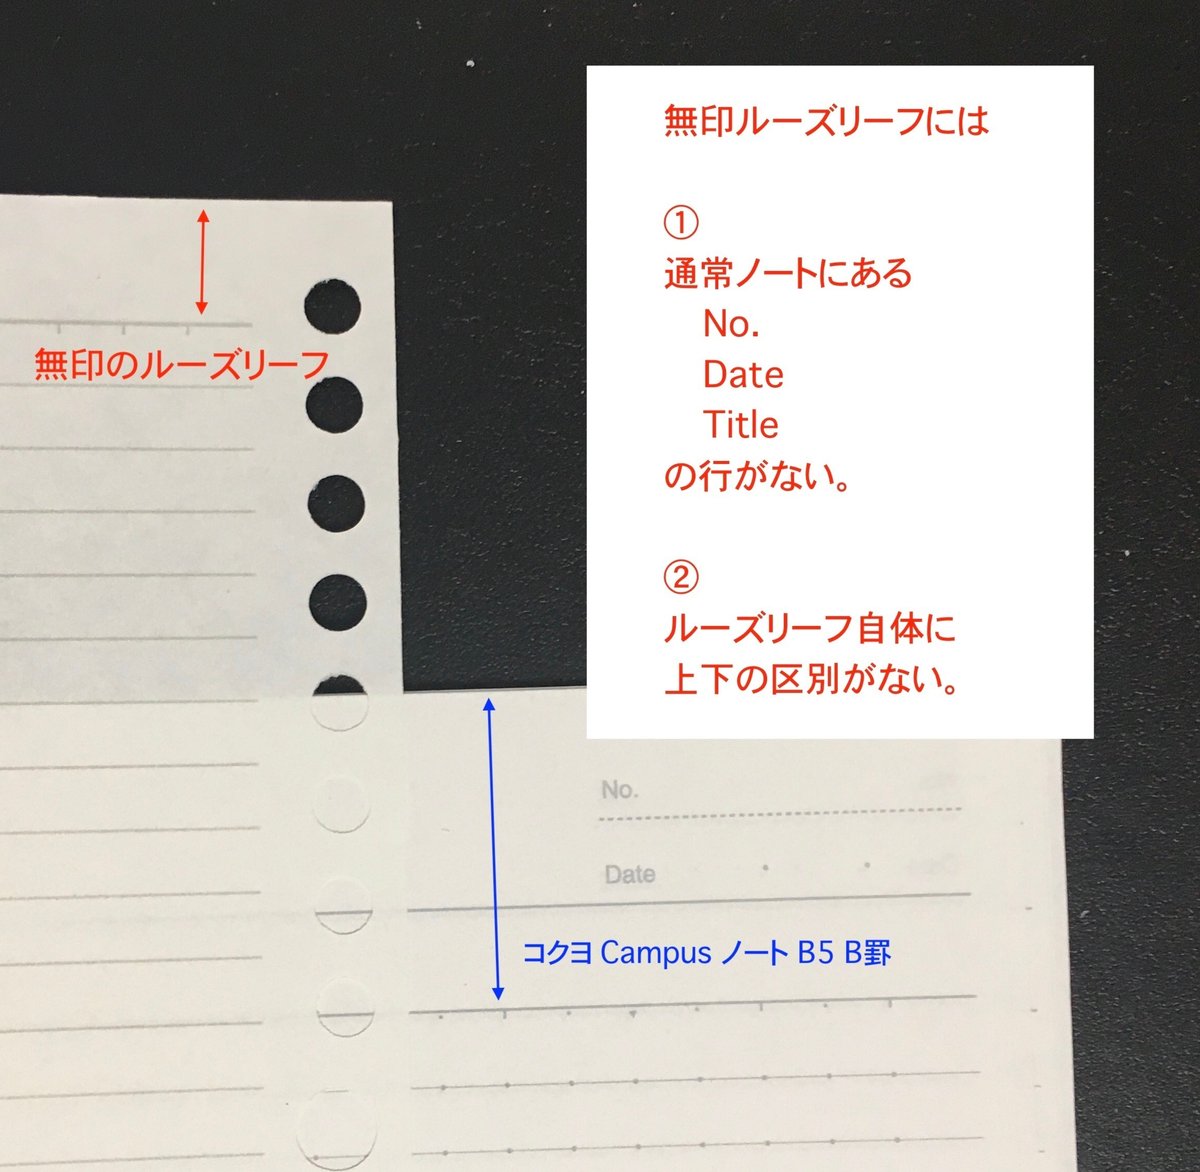 無印ルーズリーフには
①
通常ノートにある
No.
Date
Title
の行がない。
②
ルーズリーフ自体に
上下の区別がない。
無印のルーズリーフ
No.
Date
コクヨ Campus ノート B5 B罫